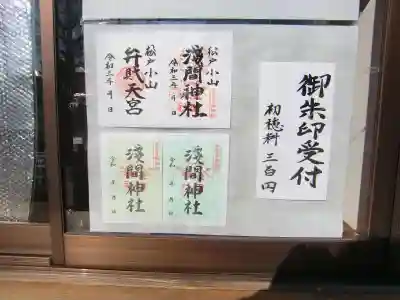 松戸小山
弁財天宮
令和三年 月 日
松戸小山
浅間神社
令和三年 月 日
御朱印受付
初穂料 三百円
浅間神社
年 月 日
浅間神社
年 月 日